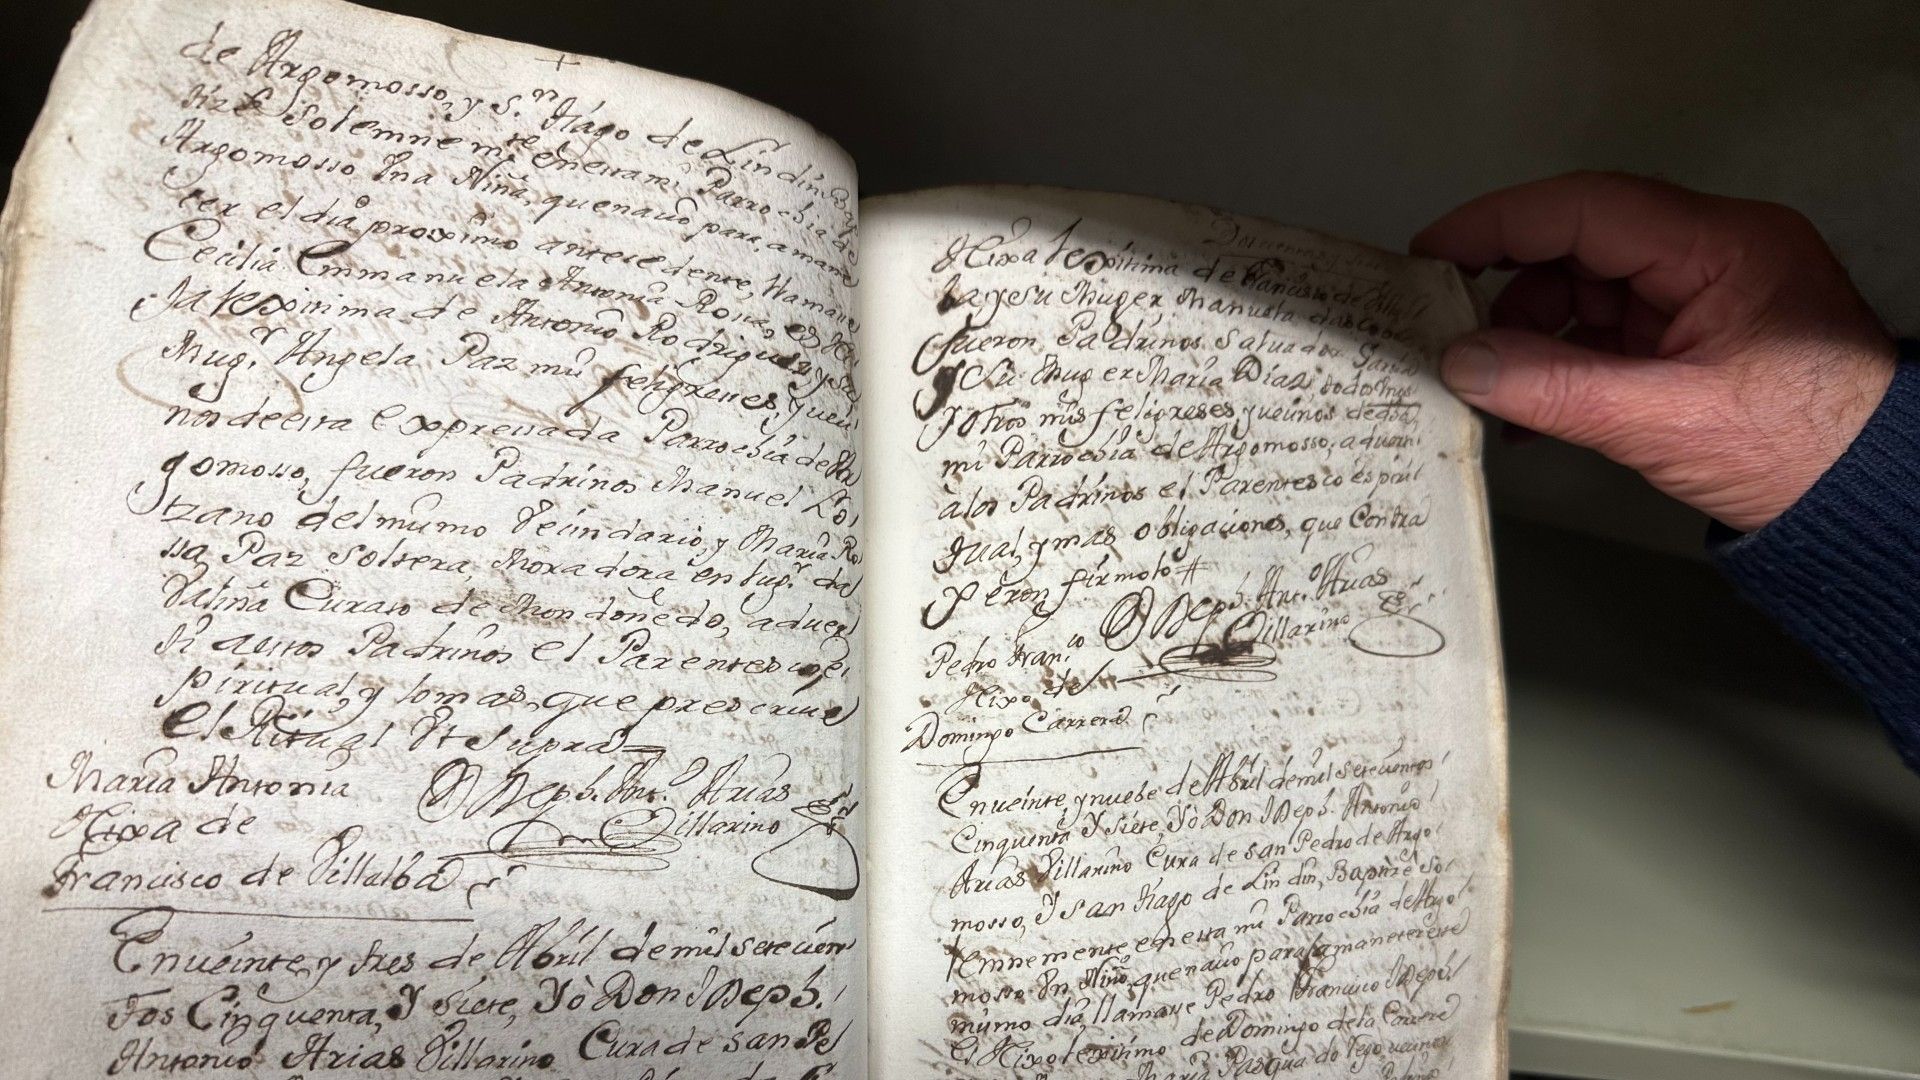 de Argomosso, y S.n Tiago de Lindin, B
Solemnem.te enesta mi Parrochia de
Argomosso Una Niña, quenació para, amane
cer el dia proximo antecedente, llamase
Cecilia Emmanuela Antonia Rossa, es Hi
Ja lexitima de Antonio Rodriguez, y su
Mug.r Angela Paz mis feligreses, y veci
nos de esta expressada Parrochia de Ar
gomosso, fueron Padrinos Manuel Lo
zano del mismo Vecindario, y Maria Ro
ssa Paz Soltera, Moradora en lug.r de
Valiña Curato de Mondoñedo, adver
ti a estos Padrinos el Parentesco es
piritual, y lo mas, que prescrive
el Ritual Ut Supra
Maria Antonia
Hixa de
Francisco de Villalba
D Joseph. Ant.o Arias
Villarino
En veinte, y tres de Abril de mil setecien
tos Cinquenta, Y siete, Yò Don Joseph.
Antonio Arias Villarino Cura de san Pe
Hixa lexitima de Francisco de Villal
ba y esu Muger Manuela
fueron, Padrinos Salvador Garcia
y Su Muger Maria Diaz, todos
y otros mis feligreses y vecinos de
mi Parrochia de Argomosso, adverti
à los Padrinos el Parentesco espiri
tual, y mas obligaciones, que Contra
xeron firmolo #
D Joseph. Ant.o Arias
Villarino
Pedro Fran.co
Hixo de
Domingo Carrera
En veinte, y nuebe de Abril de mil setecientos
Cinquenta Y siete, Yò Don Joseph. Antonio
Arias Villarino Cura de san Pedro de Argo
mosso, Y san Tiago de Lindin, Baptizè So
lemnemente en esta mi Parrochia de Argo
mosso Un Niño, quenació para amanecer este
mismo dia, llamase Pedro Francisco Joseph
es Hixo lexitimo de Domingo de la Carrera
Maria Pasqua do Tego vecinos